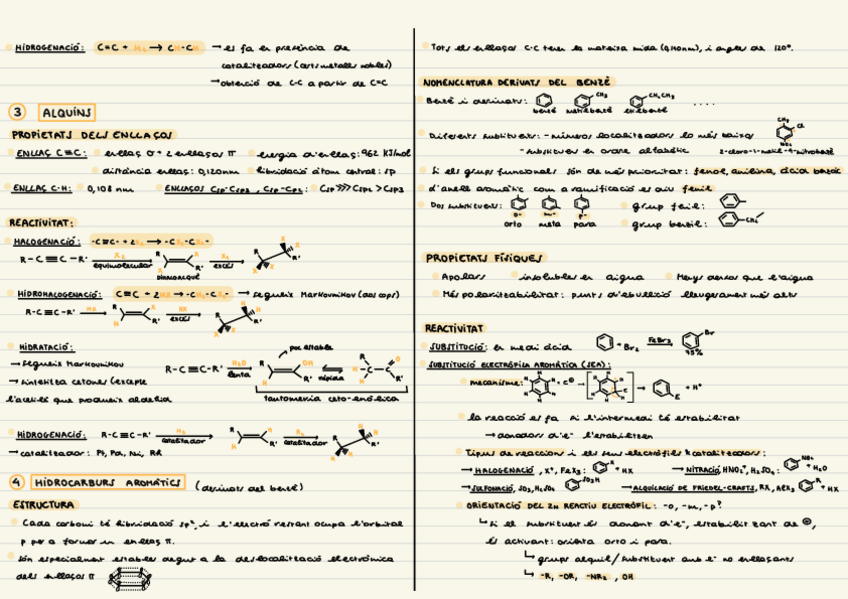 HIDROGENACIÓ: C=C + H₂ → CH-CH → es fa en presència de
catalitzadors (certs metalls nobles)
→ obtenció de C-C a partir de C=C
3 ALQUINS
PROPIETATS DELS ENLLAÇOS
ENLLAÇ C≡C: enllaç σ + 2 enllaços π energia d'enllaç: 962 KJ/mol
distància enllaç: 0,120nm hibridació àtom central: sp
ENLLAÇ C-H: 0,108 nm ENLLAÇOS Csp-Csp₃, Csp-Csp₂: Csp >>> Csp₂ > Csp₃
REACTIVITAT:
HALOGENACIÓ: -C≡C- + 2X₂ → -CX₂-CX₂-
R-C≡C-R' X₂ equimolecular R X R' X X₂ excés
DIHALOALQUÈ
HIDROHALOGENACIÓ: C≡C + 2HX → -CH₂-CX₂- → segueix Markovnikov (dos cops)
R-C≡C-R' HX R R' HX excés R R'
HIDRATACIÓ: poc estable
→ segueix Markovnikov R-C≡C-R' H₂O lenta R OH H R' ràpida
→ sintetitza cetones (excepte
l'acetilè que produeix aldehid) tautomeria ceto-enòlica
HIDROGENACIÓ: R-C≡C-R' H₂ catalitzador R H H R' H₂ catalitzador
→ catalitzador: Pt, Pd, Ni, Rh
4 HIDROCARBURS AROMÀTICS (derivats del benzè)
ESTRUCTURA
Cada carboni té hibridació sp², i l'electró restant ocupa l'orbital
p per a formar un enllaç π.
Són especialment estables degut a la deslocalització electrònica
dels enllaços π
Tots els enllaços C-C tenen la mateixa mida (0,140nm), i angles de 120°.
NOMENCLATURA DERIVATS DEL BENZÈ
Benzè i derivats: CH₃ CH₂CH₃ ....
benzè metilbenzè etilbenzè
CH₃
Diferents substituents: - números localitzadors lo més baixos Cl
- substituents en ordre alfabètic NO₂ 2-cloro-1-metil-4-nitrobenzè
Si els grups funcionals són de més prioritat: fenol, anilina, àcid benzoic
d'anell aromàtic com a ramificació es diu fenil
Dos substituents: o- m- p- grup fenil:
orto meta para grup benzil: CH₂
PROPIETATS FÍSIQUES
Apolars insolubles en aigua Menys densos que l'aigua
Més polaritzabilitat: punts d'ebullició lleugerament més alts
REACTIVITAT
SUBSTITUCIÓ: en medi àcid + Br₂ FeBr₃ Br
75%
SUBSTITUCIÓ ELECTRÒFILA AROMÀTICA (SEA):
mecanisme: H E + H⁺
la reacció es fa si l'intermedi té estabilitat
→ donadors d'e⁻ l'estabilitzen
Tipus de reaccions i els seus electròfils & catalitzadors:
→ HALOGENACIÓ, X⁺, FeX₃: X + HX → NITRACIÓ HNO₃, H₂SO₄: NO₂ + H₂O
→ SULFONACIÓ, SO₃, H₂SO₄ SO₃H → ALQUILACIÓ DE FRIEDEL-CRAFTS, RX, AlX₃ R + HX
ORIENTACIÓ DEL 2N REACTIU ELECTRÒFIL: -o, -m, -p?
↳ Si el substituent és donant d'e⁻, estabilitzant de ⊕,
és activant: orienta orto i para.
↳ grups alquil / substituent amb e⁻ no enllaçants
↳ -R, -OR, -NR₂, OH